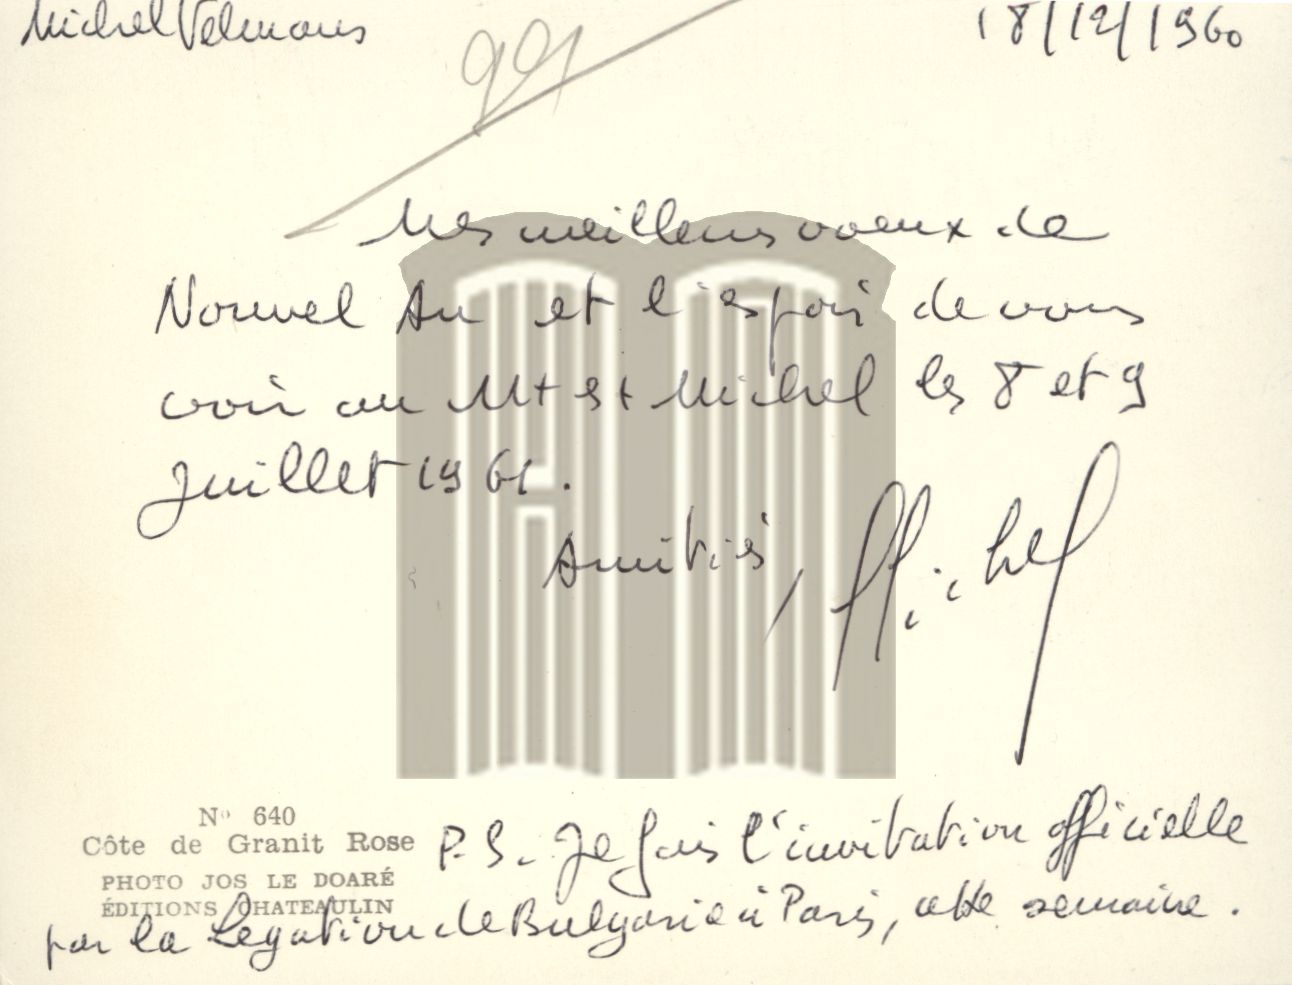 Michel Velmans
18/12/1960
991
Mes meilleurs voeux de
Nouvel An et l'espoir de vous
voir au Mt St Michel les 8 et 9
Juillet 1961.
Amitiés, Michel
No 640
Côte de Granit Rose
PHOTO JOS LE DOARÉ
ÉDITIONS CHATEAULIN
P.S. Je fais l'invitation officielle
par la Légation de Bulgarie à Paris, cette semaine.